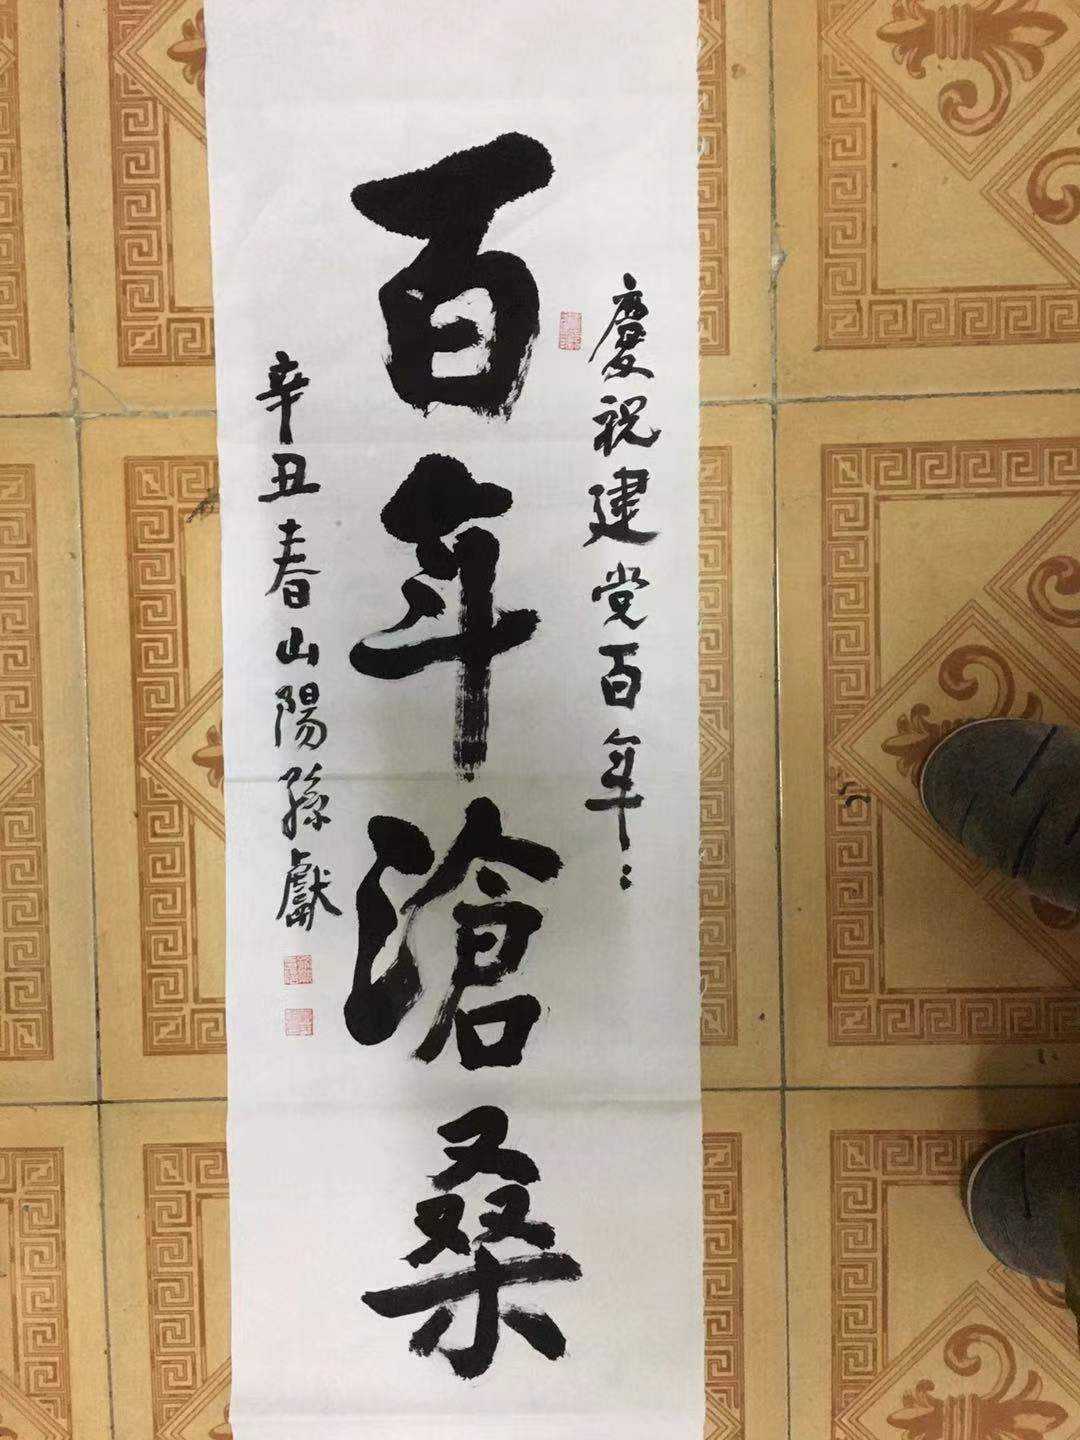 慶祝建党百年:
百年滄桑
辛丑春山陽孫獻